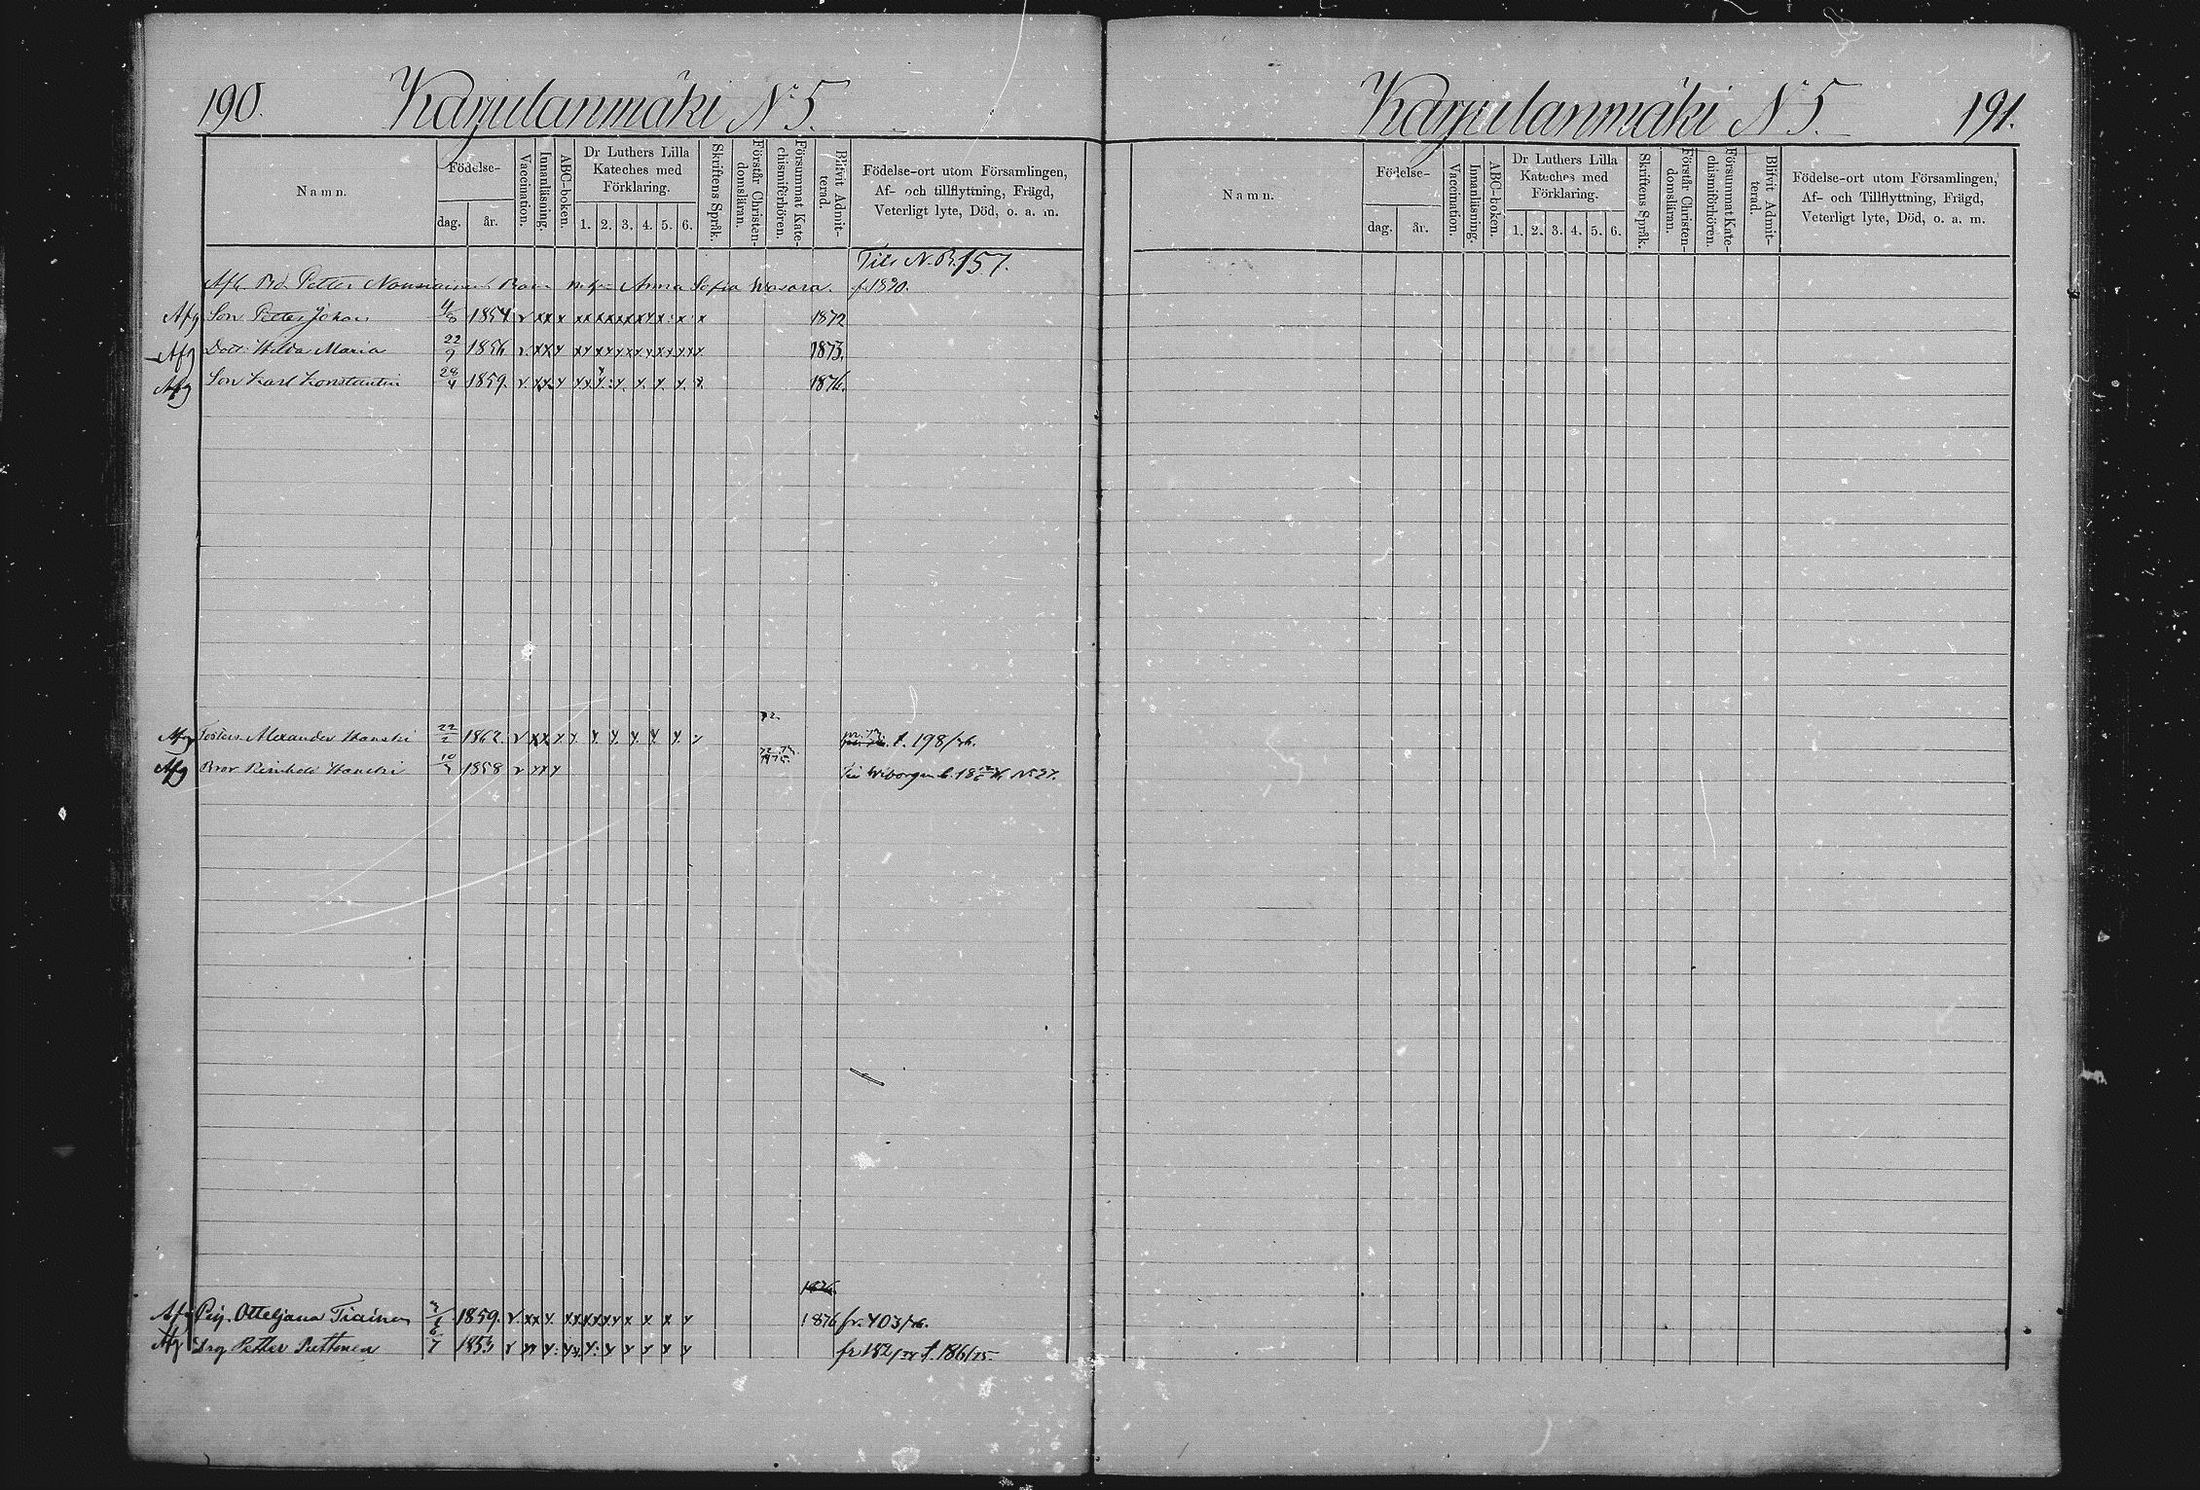 190. Karjulanmäki N:5.
Namn. Födelse- dag. år. Vaccination. Innanläsning. ABC-boken. Dr Luthers Lilla Kateches med Förklaring. 1. 2. 3. 4. 5. 6. Skriftens Språk. Förstår Christendomsläran. Försummat Katechismiförhören. Blifvit Admitterad. Födelse-ort utom Församlingen, Af- och tillflyttning, Frägd, Veterligt lyte, Död, o. a. m.
Till N. B. 157.
Petter Anna Sofia Wasara. f. 1820.
Afg Son Petter Johan 1854 v xx x xx xx xx x x x x x 1872
Afg Dott: Hilda Maria 22/9 1856 1873.
Afg Son Karl Konstantin 28/4 1859. 1876.
72.
Afg Alexander Hanski 22/2 1862. t. 198/76.
Afg Bror Reinhold Hanski 1858 v x x x Till Wiborgs N:o 27.
1876.
Afg Pig. Otteljana Tiainen 1859. 1876 fr. 403/76.
Afg Drg Petter Puttonen 6/7 1853 fr 182/74 t. 186/75.
Karjulanmäki N:5. 191.
Namn. Födelse- dag. år. Vaccination. Innanläsning. ABC-boken. Dr Luthers Lilla Kateches med Förklaring. 1. 2. 3. 4. 5. 6. Skriftens Språk. Förstår Christendomsläran. Försummat Katechismiförhören. Blifvit Admitterad. Födelse-ort utom Församlingen, Af- och Tillflyttning, Frägd, Veterligt lyte, Död, o. a. m.